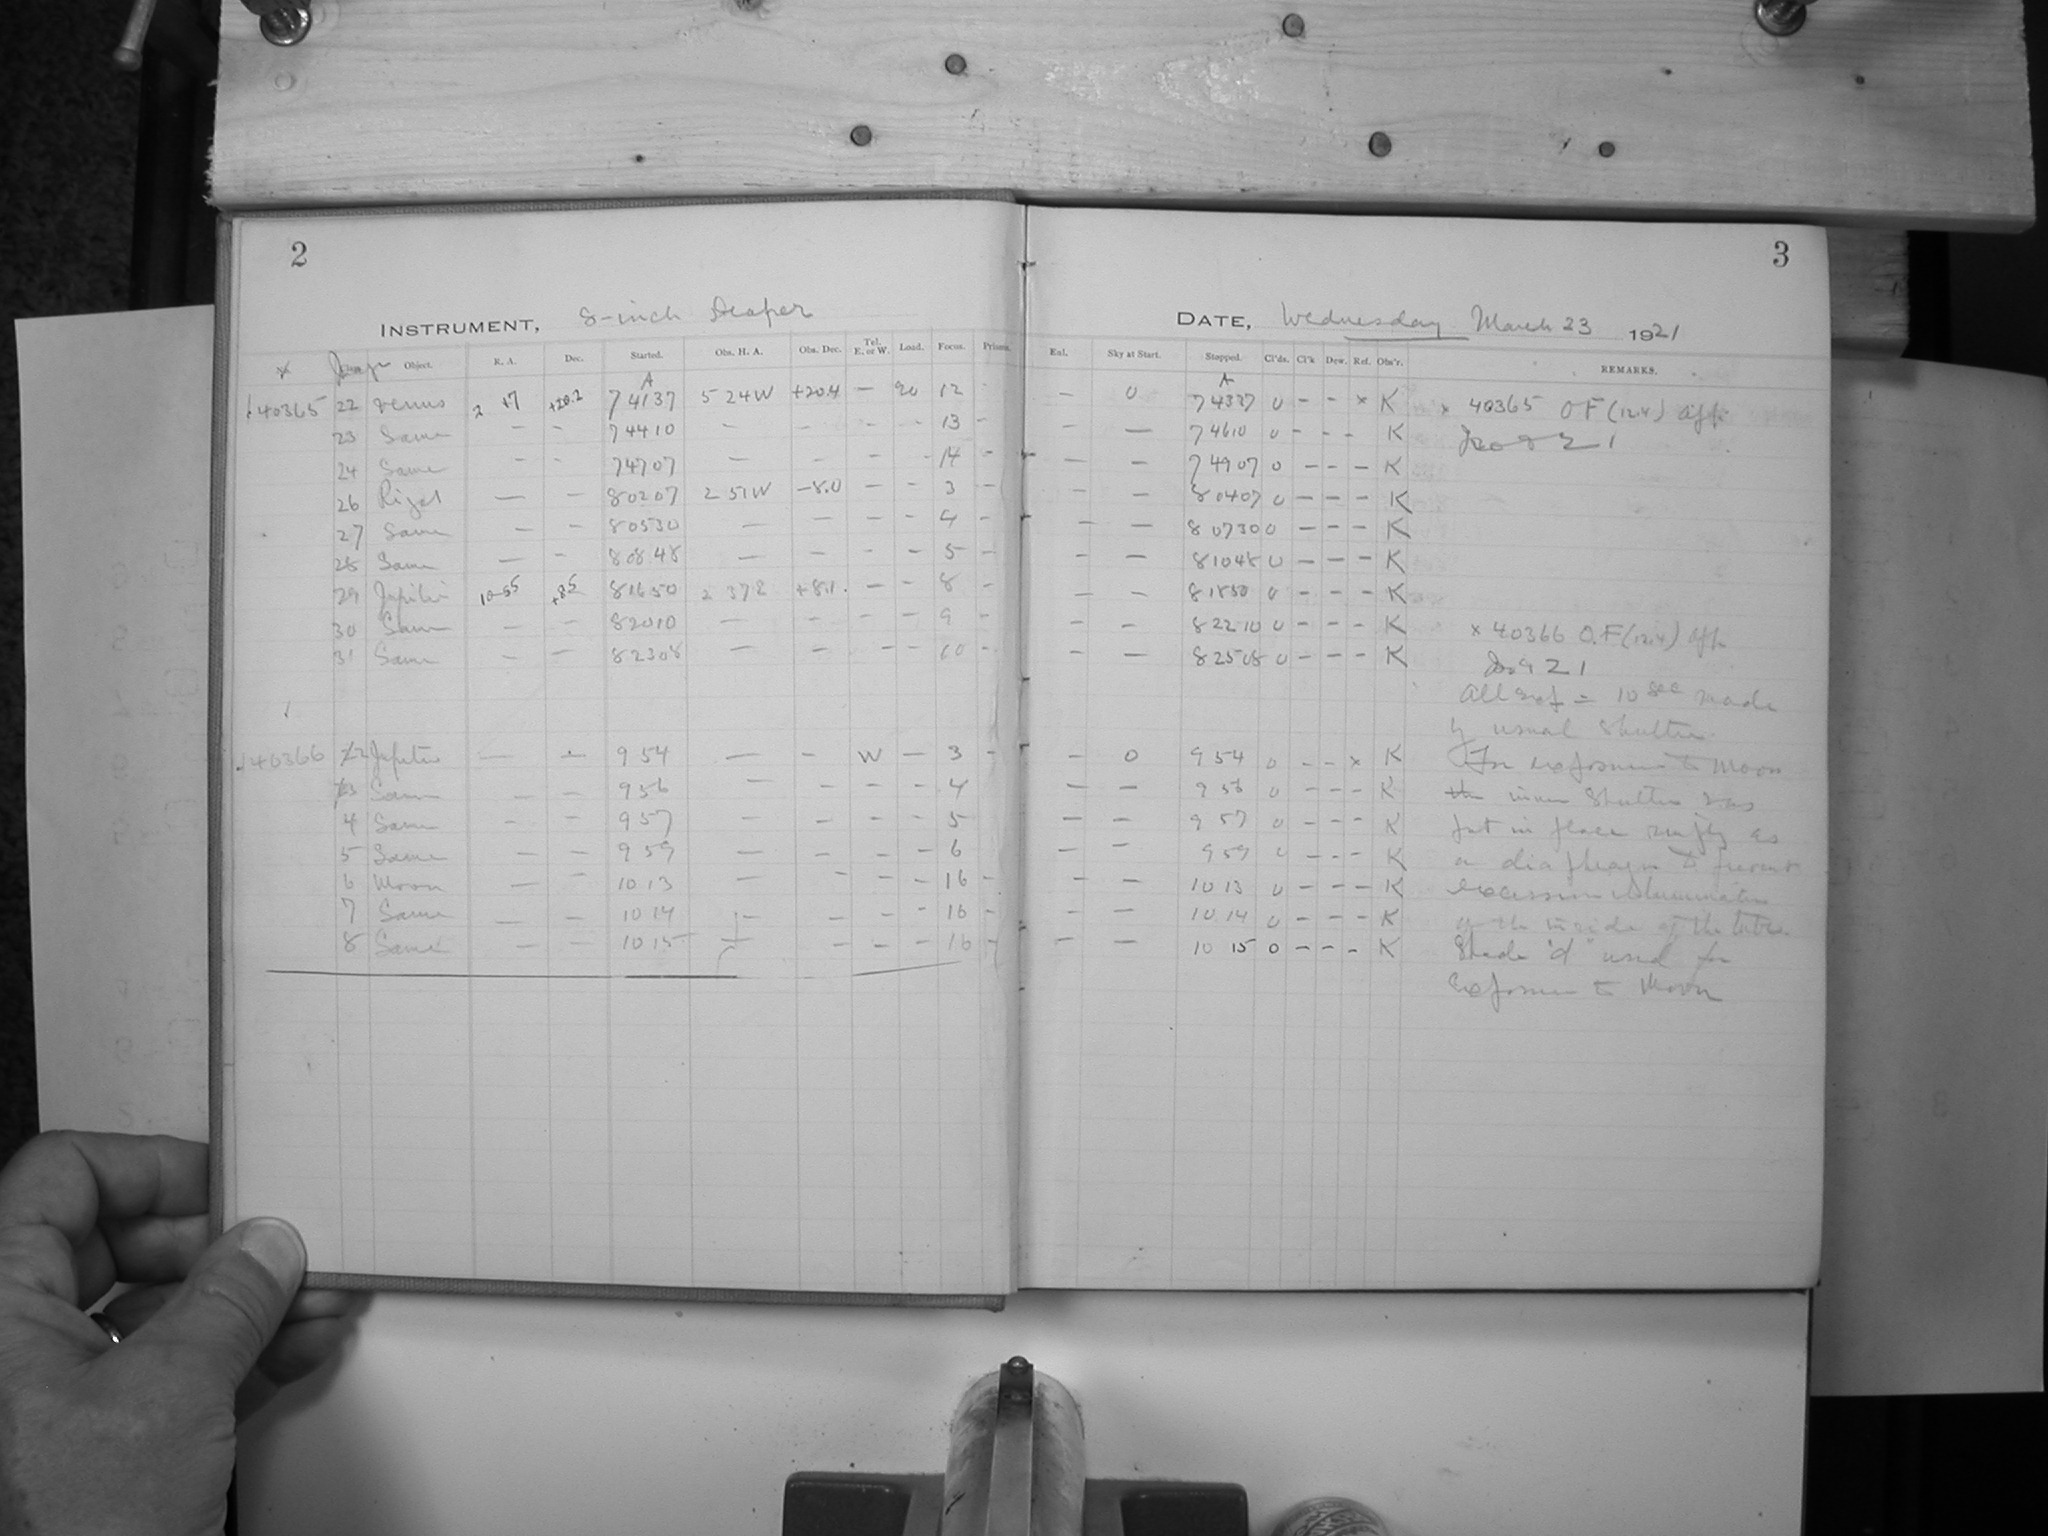 2
INSTRUMENT, 8-inch Draper
Image Object. R. A. Dec. Started. Obs. H. A. Obs. Dec. Tel. E. or W. Load. Focus. Prisms.
40365 22 Venus 2 17 +20.2 A 7 41 37 5 24W +20.4 — 20 12 -
23 Same — — 7 44 10 — — — - 13 -
24 Same — — 7 47 07 — — — - 14 -
26 Rigel — — 8 02 07 2 51W -8.0 — - 3 -
27 Same — — 8 05 30 — — — - 4 -
28 Same — — 8 08 48 — — — - 5 -
29 Jupiter 10 55 +8.5 8 16 50 2 37E +8.1 — - 8 -
30 Same — — 8 20 10 — — — - 9 -
31 Same — — 8 23 08 — — — - 10 -
40366 2 Jupiter — — 9 54 — — W — 3 -
3 Same — — 9 56 — — — - 4
4 Same — — 9 57 — — — - 5
5 Same — — 9 59 — — — - 6
6 Moon — — 10 13 — — — - 16 -
7 Same — — 10 14 — — — - 16 -
8 Same — — 10 15 — — — - 16 -
3
DATE, Wednesday March 23 1921
Enl. Sky at Start. Stopped. Cl'ds. Cl'k Dew. Ref. Obs'r. REMARKS.
— 0 A 7 43 37 0 - - x K x 40365 O F (12.4) aff.
— — 7 46 10 0 - - - K 21
— — 7 49 07 0 - - - K
— — 8 04 07 0 - - - K
— — 8 07 30 0 - - - K
— — 8 10 48 0 - - - K
— — 8 18 50 0 - - - K
— — 8 22 10 0 - - - K x 40366 O.F (12.4) aff.
— — 8 25 08 0 - - - K 21
All exp = 10 sec made
by usual shutter.
— 0 9 54 0 - - x K For exposures to Moon
— — 9 56 0 - - - K the inner shutter was
— — 9 57 0 - - - K put in place simply as
— — 9 59 0 - - - K a diaphragm to prevent
— — 10 13 0 - - - K excessive illumination
— — 10 14 0 - - - K of the inside of the tube.
— — 10 15 0 - - - K Shade "d" used for
exposures to Moon